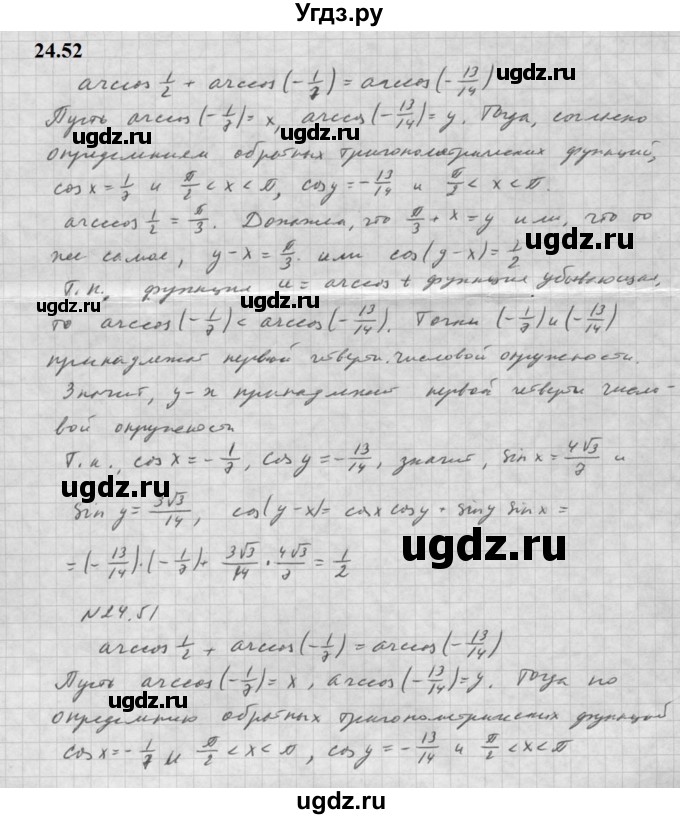 Угдз.ру
24.52
arccos 1/2 + arccos(-1/7) = arccos(-13/14)
Пусть arccos(-1/7) = x, arccos(-13/14) = y. Тогда, согласно
ugdz.ru ugdz.ru
определением обратных тригонометрических функций,
cos x = 1/7 и π/2 < x < π, cos y = -13/14 и π/2 < x < π.
arccos 1/2 = π/3. Докажем, что π/3 + x = y или, что то
ugdz.ru
же самое, y - x = π/3 или cos(y-x) = 1/2
Т.к. функция u = arccos t функция убывающая,
ugdz.ru ugdz.ru
то arccos(-1/7) < arccos(-13/14). Точки (-1/7) и (-13/14)
принадлежат первой четверти числовой окружности.
Значит, y-x принадлежит первой четверти число-
вой окружности
Т.к., cos x = -1/7, cos y = -13/14, значит, sin x = 4√3/7 и
ugdz.ru
sin y = 3√3/14, cos(y-x) = cos x cos y + sin y sin x =
ugdz.ru
= (-13/14)·(-1/7) + 3√3/14 · 4√3/7 = 1/2
№24.51
arccos 1/2 + arccos(-1/7) = arccos(-13/14)
ugdz.ru
Пусть arccos(-1/7) = x, arccos(-13/14) = y. Тогда по
ugdz.ru
определению обратных тригонометрических функций
cos x = -1/7 и π/2 < x < π, cos y = -13/14 и π/2 < x < π
ugdz.ru
ugdz.ru